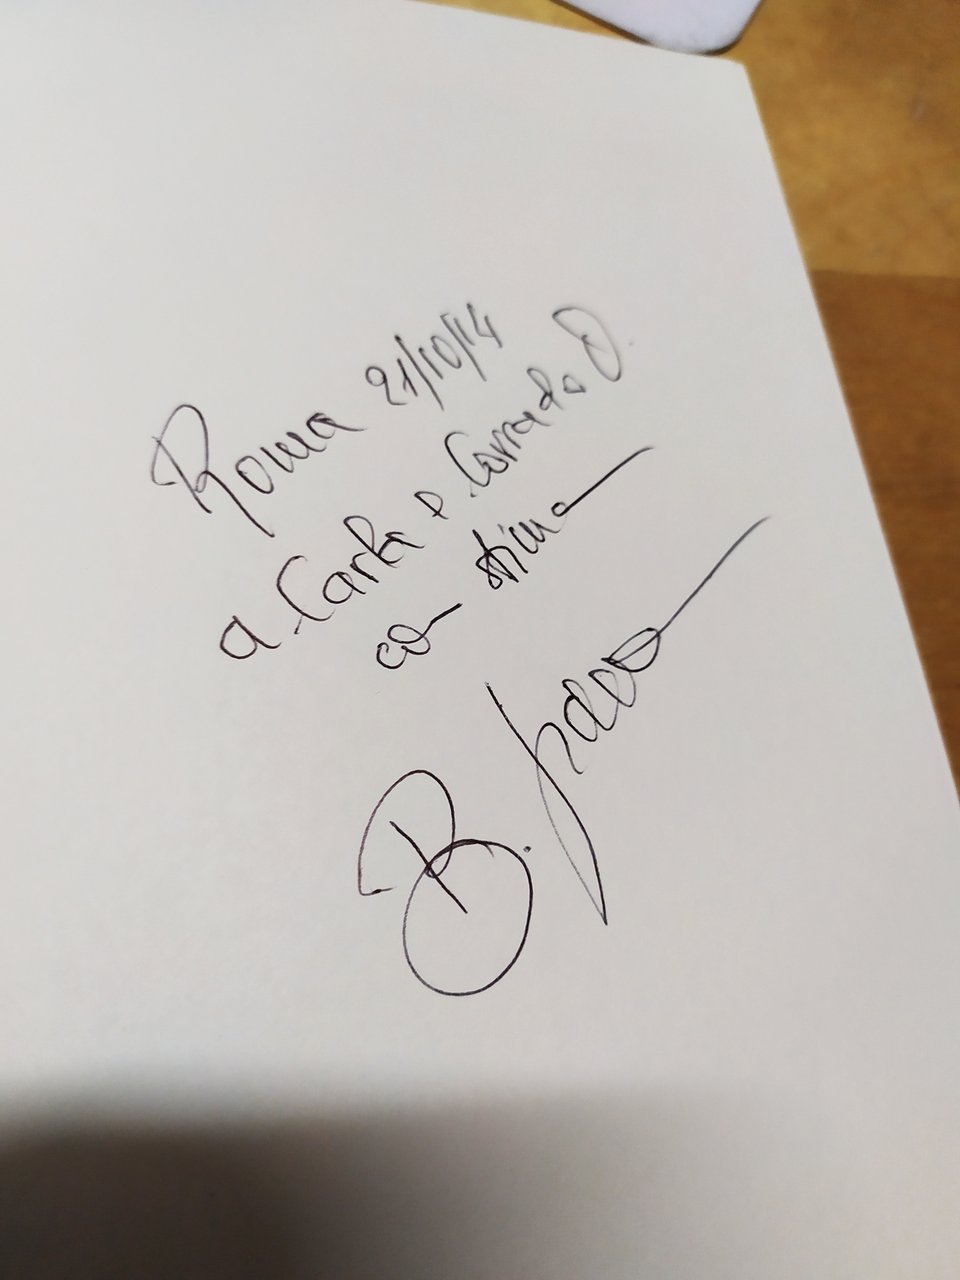 Roma 21/10/14
a Carla e Corrado D.
con stima
B.